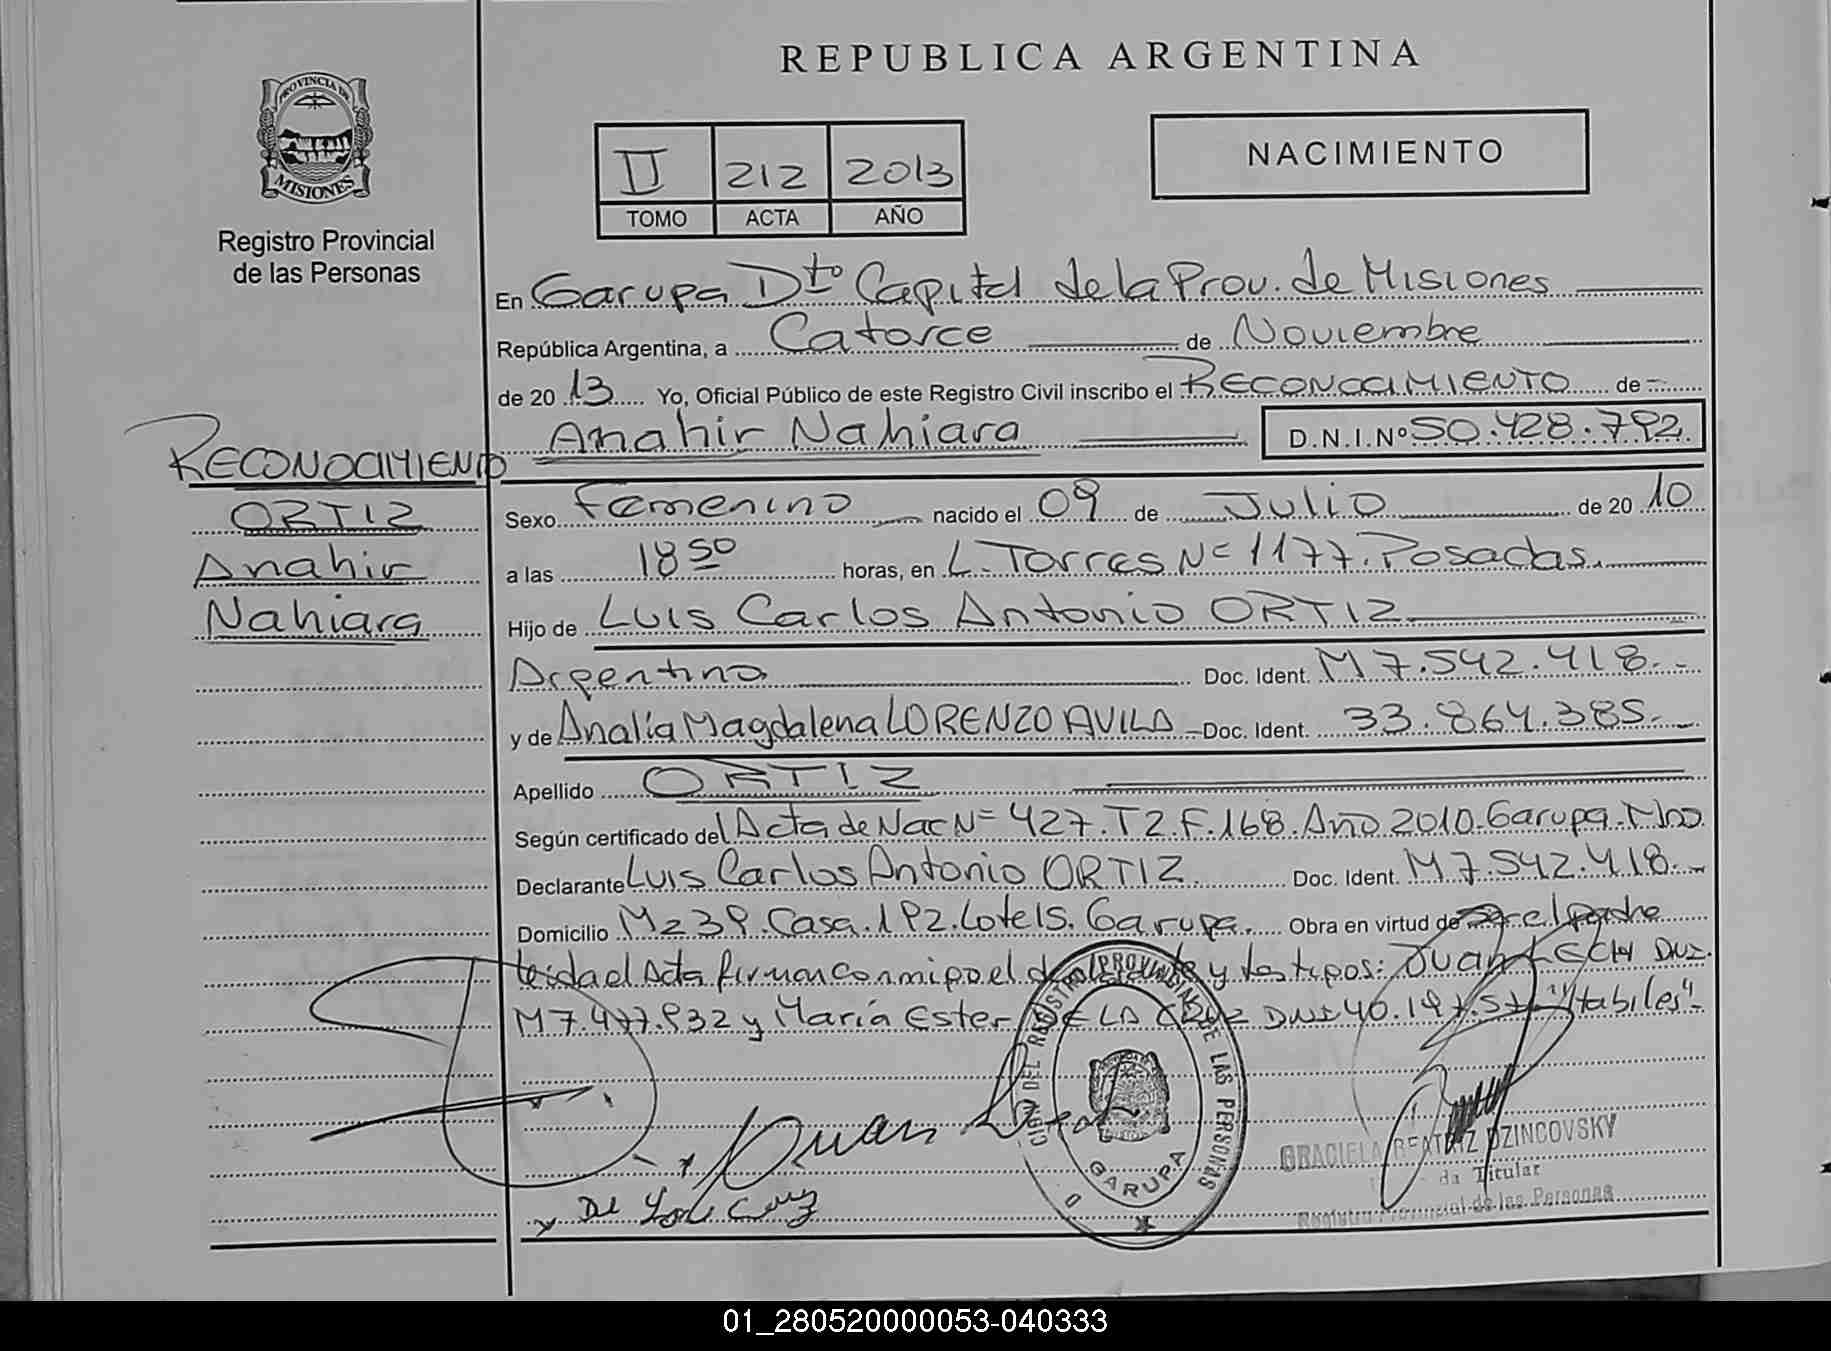 REPUBLICA ARGENTINA
PROVINCIA DE
MISIONES
Registro Provincial
de las Personas
II 212 2013
TOMO ACTA AÑO
NACIMIENTO
En Garupa Dto Capital de la Prov. de Misiones
República Argentina, a Catorce de Noviembre
de 2013 Yo, Oficial Público de este Registro Civil inscribo el RECONOCIMIENTO de
Anahir Nahiara D.N.I.Nº 50.428.792
RECONOCIMIENTO
ORTIZ
Anahir
Nahiara
Sexo Femenino nacido el 09 de Julio de 2010
a las 18 50 horas, en L. Torres Nº 1177. Posadas.
Hijo de Luis Carlos Antonio ORTIZ
Argentino Doc. Ident. M 7.542.418.-
y de Analía Magdalena LORENZO AVILA Doc. Ident. 33.864.385.-
Apellido ORTIZ
Según certificado del Acta de Nac Nº 427. T2. F. 168. Año 2010. Garupa. Mnes
Declarante Luis Carlos Antonio ORTIZ Doc. Ident. M 7.542.418.-
Domicilio Mz 39. Casa. 192. Lote 15. Garupa. Obra en virtud de ser el padre
leida el Acta firman conmigo el y los tgos: Juan
M 7.477.932 y María Ester DE LA CRUZ DNI 40. "Habiles"-
Juan
De La Cruz
REGISTRO PROVINCIAL DE LAS PERSONAS
GARUPA
GRACIELA BEATRIZ DZINCOVSKY
Titular
Registro Provincial de las Personas
01_280520000053-040333